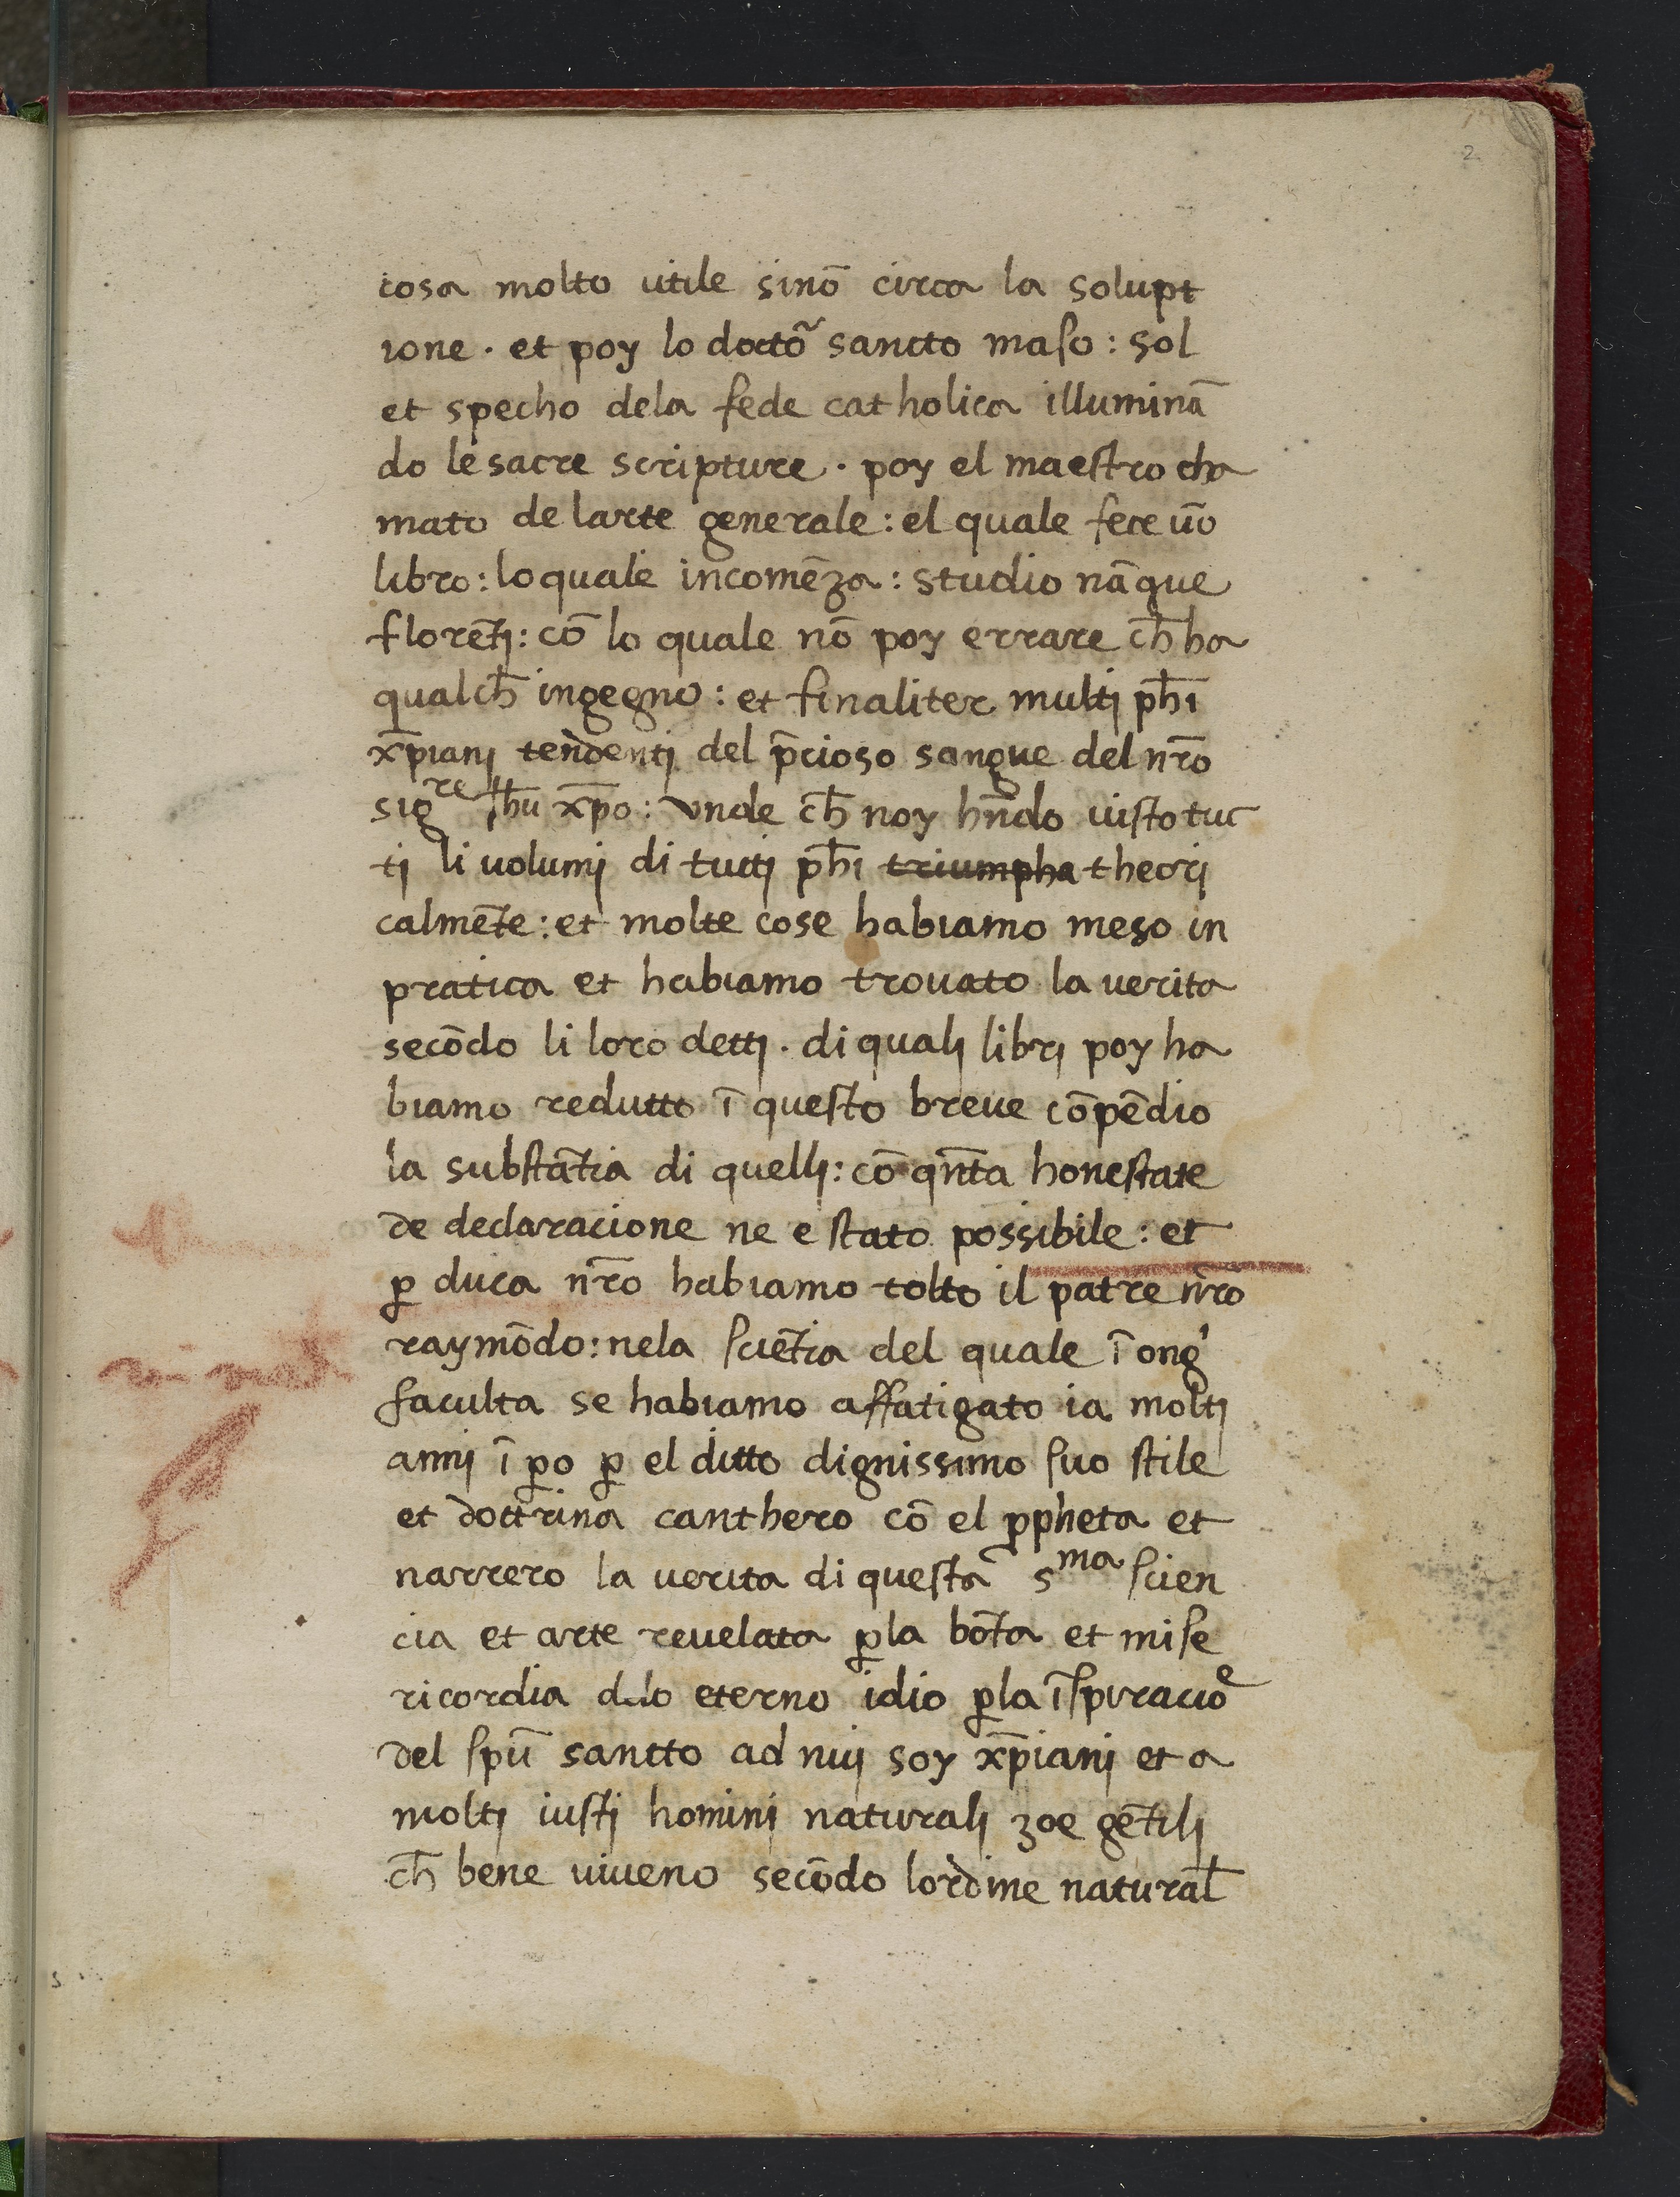 2
cosa molto utile sinō circa la solupt
ione . et poy lo doctō sancto maſo : sol
et specho dela fede catholica illuminā
do le sacre scripture . poy el maeſtro cha
mato de larte generale : el quale fece ūo
libro : lo quale incomēza : studio nāque
florētj : cō lo quale nō poy errare ch̄ ha
qualch̄ ingegno : et finaliter multj ph̄i
xp̄ianj tendentj del p̄cioso sangue del nr̄o
sigre Jh̄u xp̄o : vnde ch̄ noy hn̄do uiſto tuc
tj li uolumj di tuttj ph̄i triumpha theorj
calmēte : et molte cose habiamo meso in
pratica et habiamo trouato la uerita
secōdo li loro dettj . di qualj librj poy ha
biamo redutto ī queſto breue cōpēdio
la subſtātia di quellj : cō qn̄ta honeſtate
de declaracione ne e ſtato possibile : et
ꝑ duca nr̄o habiamo tolto il patre nr̄o
raymōdo : nela ſciētia del quale ī ong'
faculta se habiamo affatigato ia moltj
annj ī ꝑo ꝑ el ditto dignissimo ſuo ſtile
et dottrina canthero cō el ꝓpheta et
narrero la uerita di queſta sma ſcien
cia et arte reuelata ꝑ la bōta et miſe
ricordia delo eterno idio ꝑ la īſpiracioe
del ſpū sancto ad nuj soy xp̄ianj et a
moltj iuſtj hominj naturalj zoe gētilj
ch̄ bene uiueno secōdo lordine natural̄